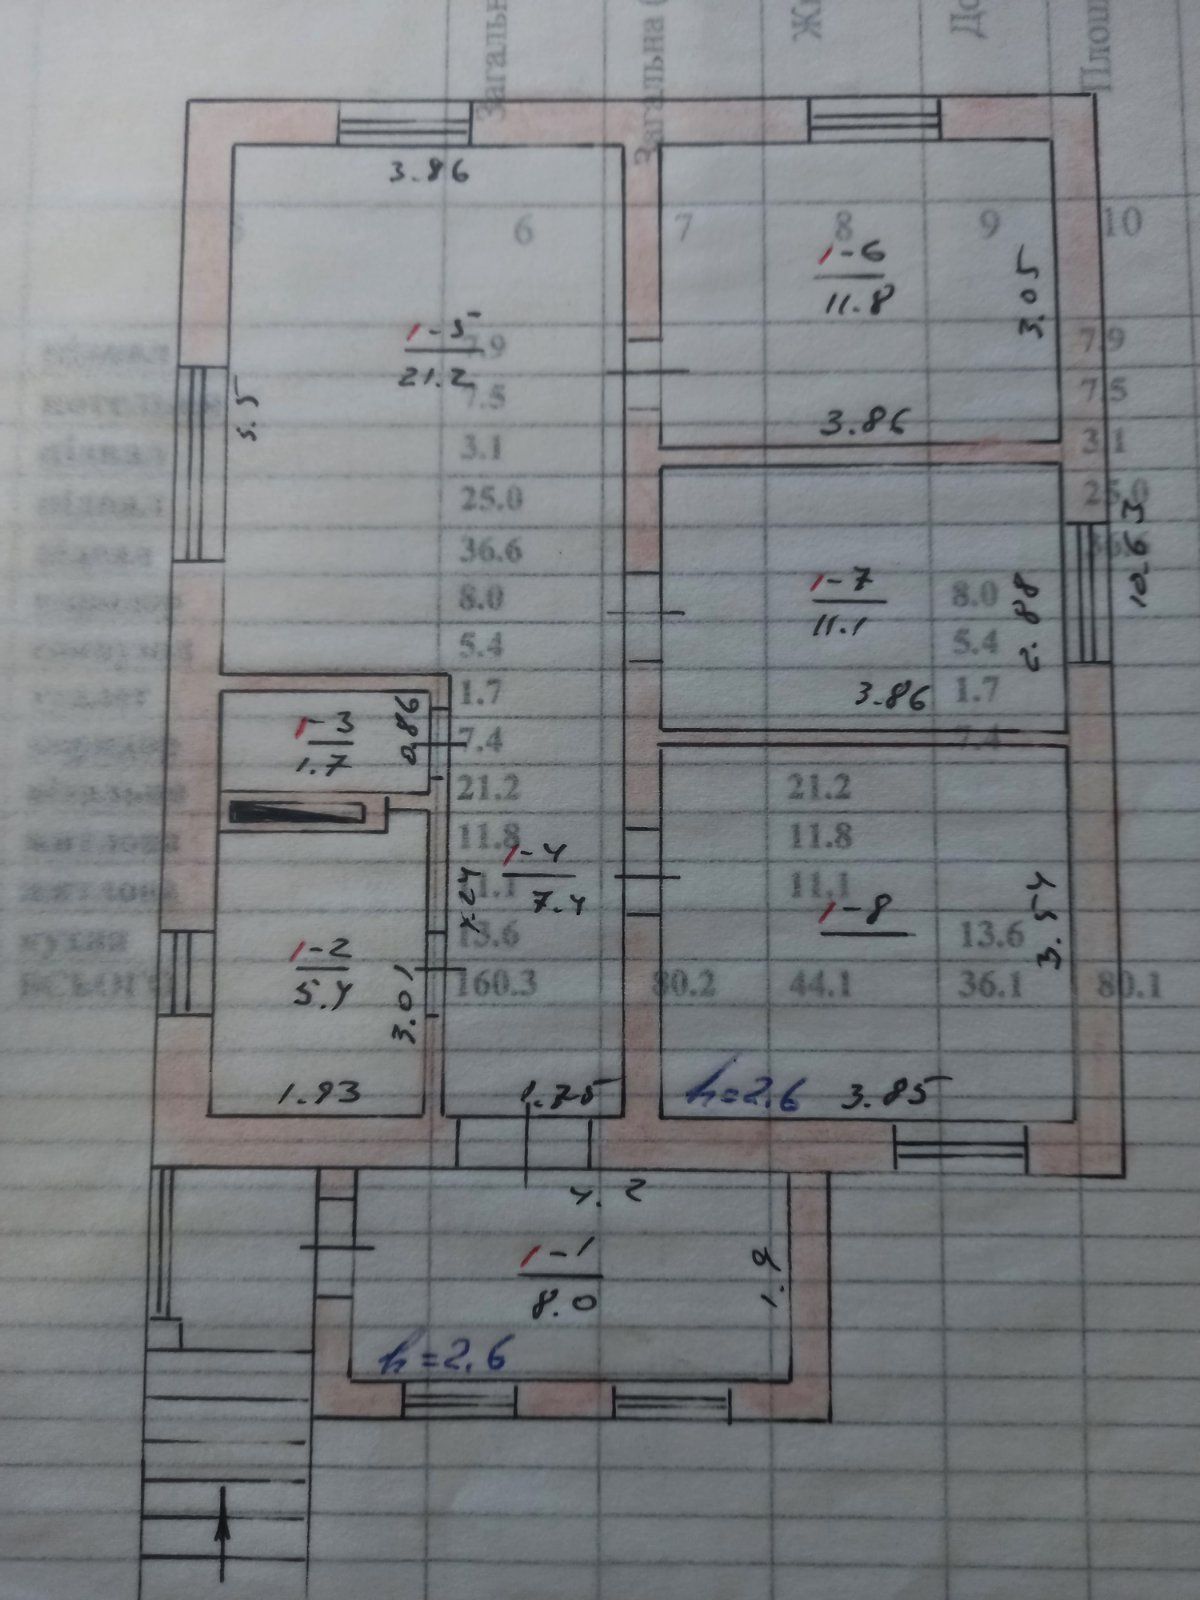 Загальн
Загальна
Жи
До
Площ
6
7
8
9
10
3.86
1-6
11.8
3.05
1-5
21.2
7.9
7.9
5.5
7.5
7.5
3.86
3.1
3.1
підвал
25.0
25.0
10.63
36.6
1-7
11.1
2.88
8.0
8.0
5.4
5.4
3.86
1.7
1.7
1-3
1.7
0.86
7.4
7.4
21.2
21.2
11.8
11.8
1-4
7.4
11.1
11.1
1-8
3.54
кухня
13.6
13.6
1-2
5.4
3.01
ВСЬОГО
160.3
80.2
44.1
36.1
80.1
1.93
1.75
h=2.6
3.85
4.2
1-1
8.0
1.9
h=2.6